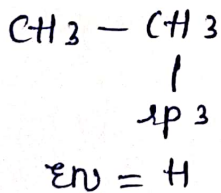 CH3 - CH3
|
sp3
EN = H